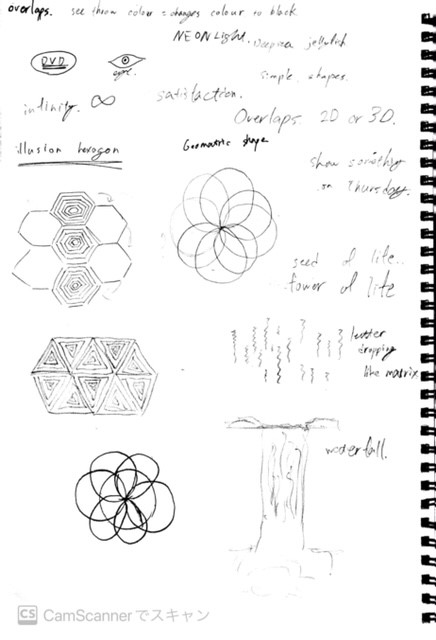 overlaps. see throw colour = changes colour to black
NEON Light. Deepsea jellyfish
DVD
simple shapes.
infinity. ∞
satisfaction.
Overlaps 2D or 3D.
illusion hexogon
Geomatric shape
show something
on Thursday.
seed of life..
fower of life
letter
dropping
like matrix.
waterfall.
CS CamScannerでスキャン